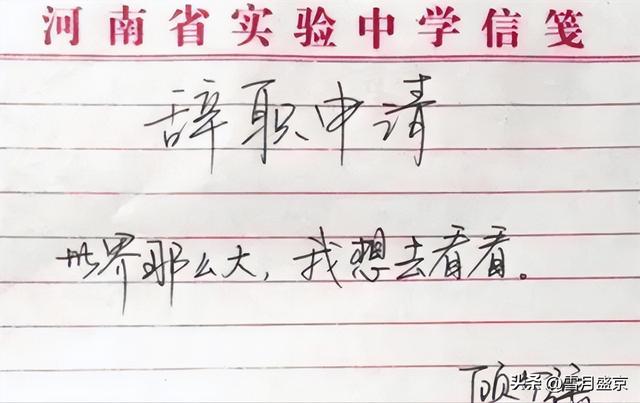 河南省实验中学信笺
辞职申请
世界那么大，我想去看看。
顾
头条 @霁月盛京